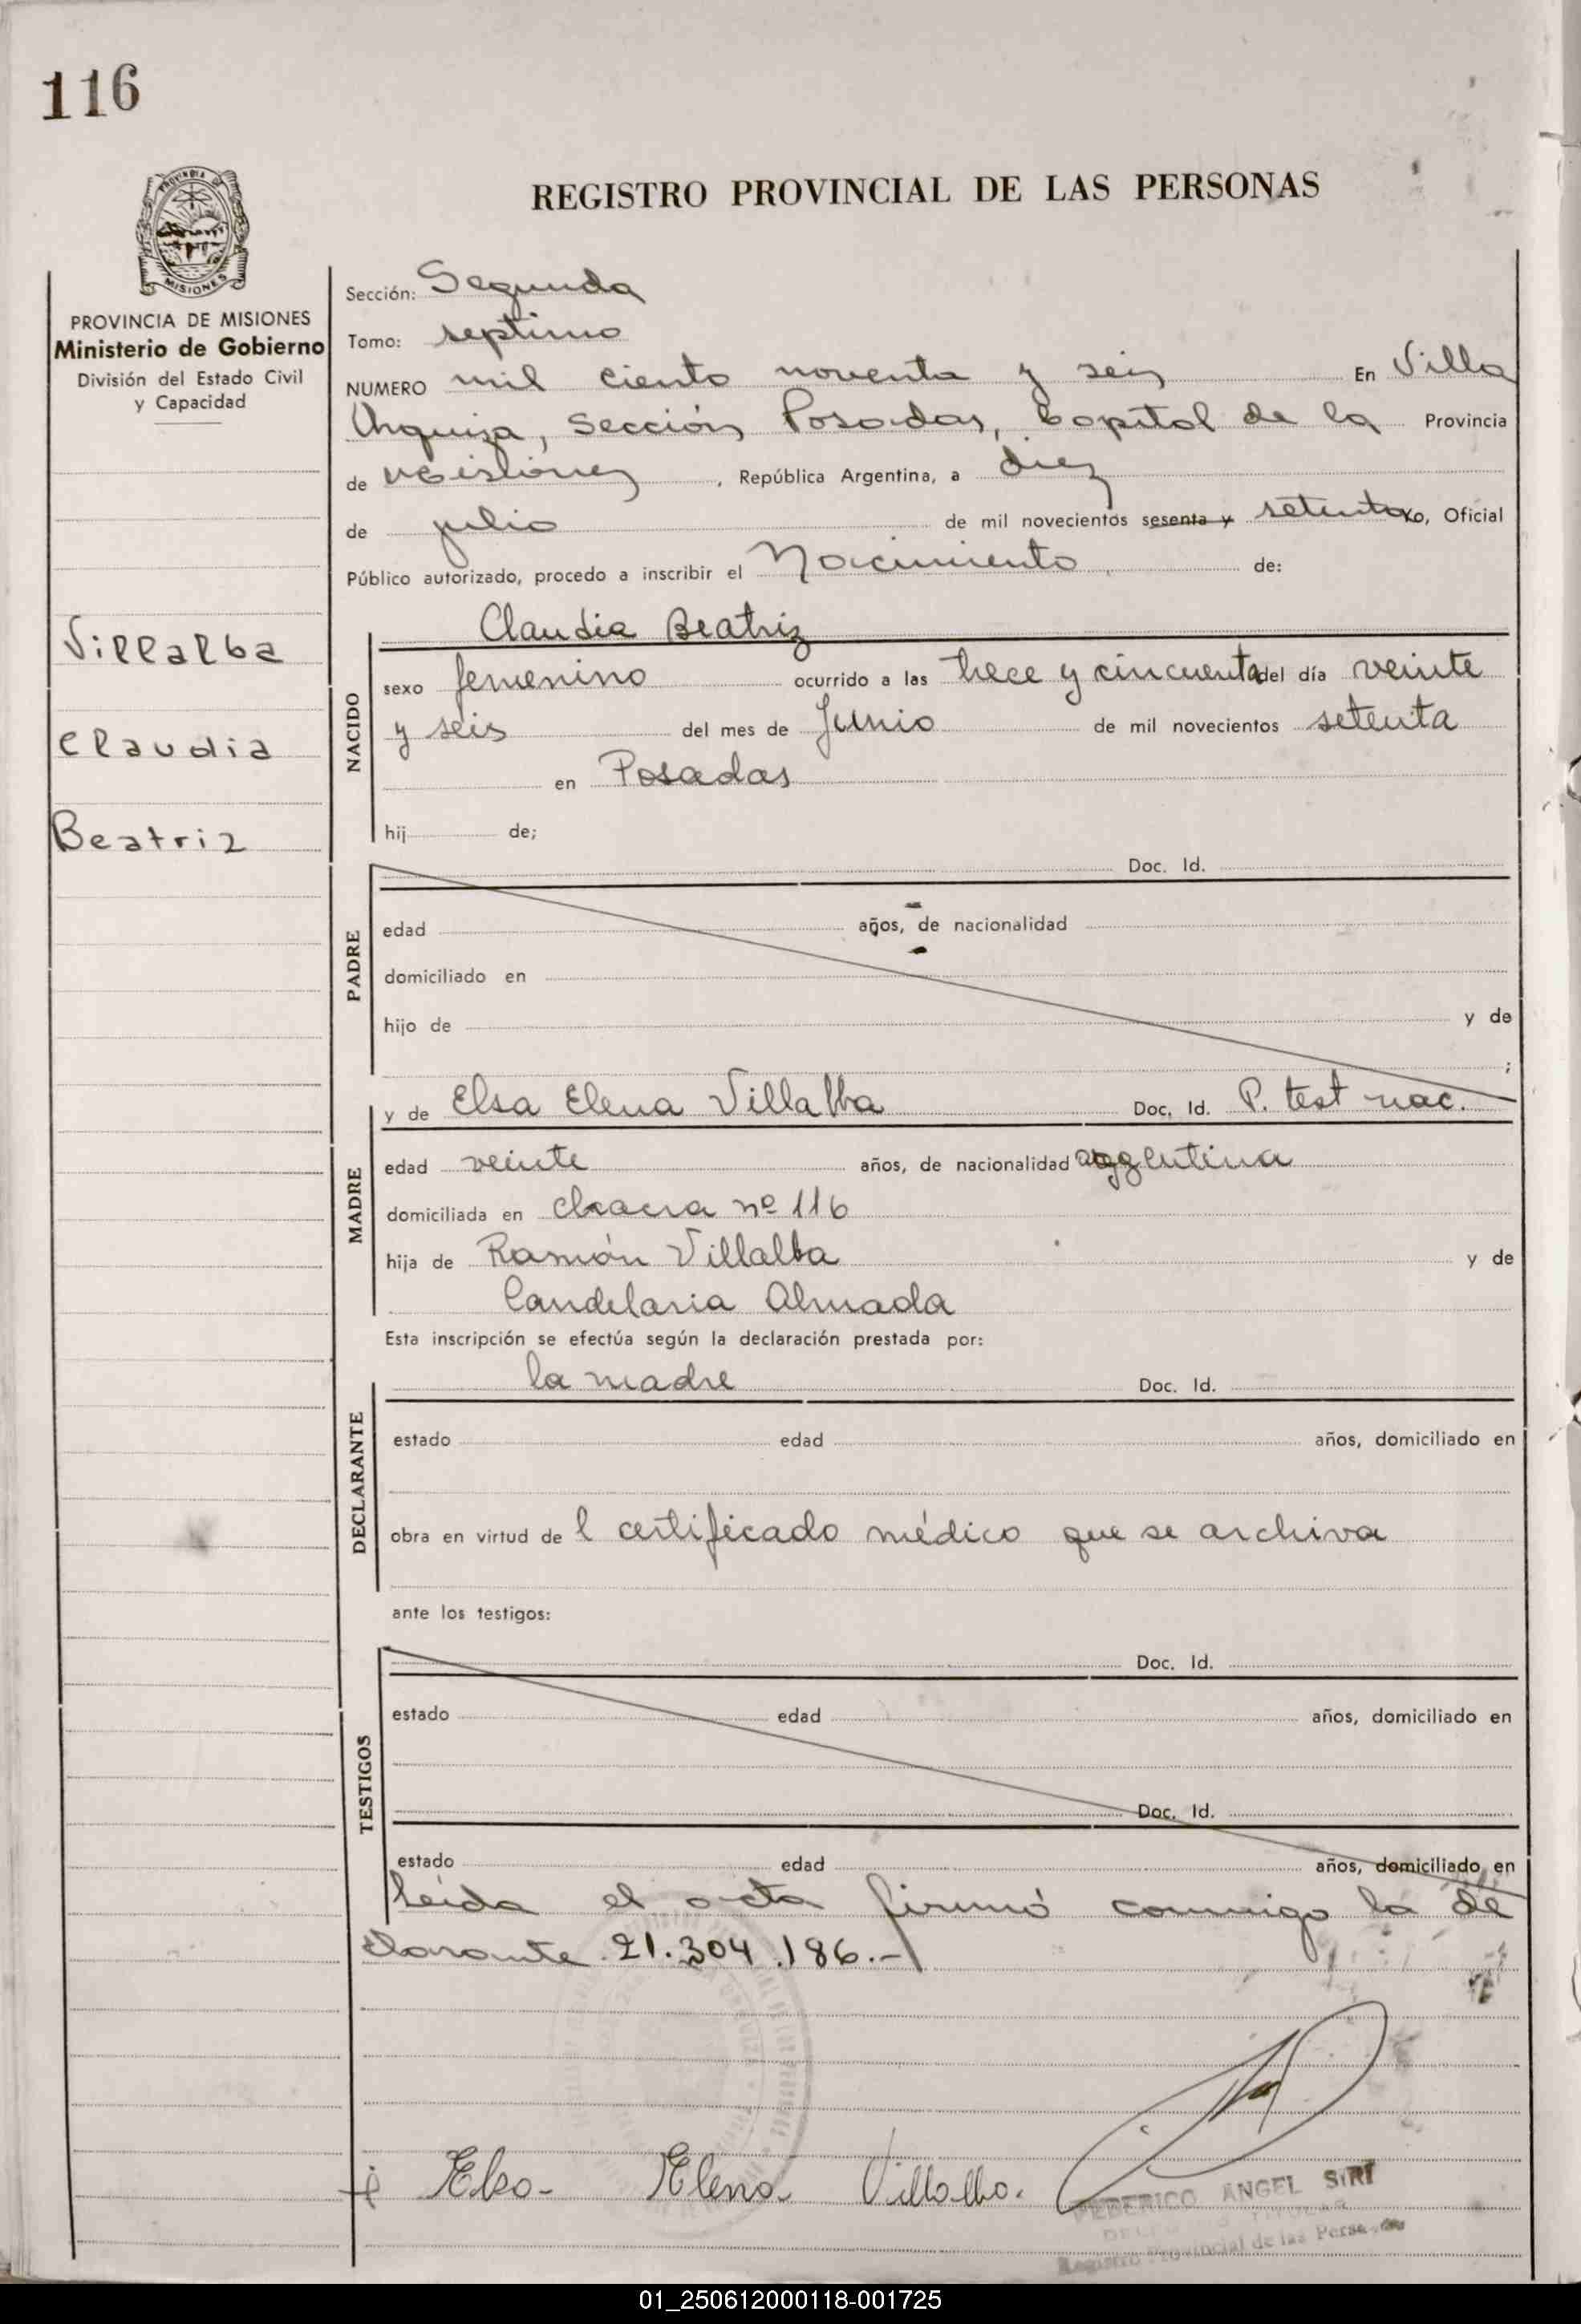 116
PROVINCIA DE
MISIONES
REGISTRO PROVINCIAL DE LAS PERSONAS
PROVINCIA DE MISIONES
Ministerio de Gobierno
División del Estado Civil
y Capacidad
Villalba
Claudia
Beatriz
Sección: Segunda
Tomo: septimo
NUMERO mil ciento noventa y seis En Villa
Urquiza, Sección Posadas, Capital de la Provincia
de Misiones, República Argentina, a diez
de julio de mil novecientos sesenta y setenta yo, Oficial
Público autorizado, procedo a inscribir el Nacimiento de:
NACIDO
Claudia Beatriz
sexo femenino ocurrido a las trece y cincuenta del día veinte
y seis del mes de Junio de mil novecientos setenta
en Posadas
hij de;
PADRE
Doc. Id.
edad años, de nacionalidad
domiciliado en
hijo de y de
;
MADRE
y de Elsa Elena Villalba Doc. Id. P. test nac.
edad veinte años, de nacionalidad argentina
domiciliada en chacra nº 116
hija de Ramón Villalba y de
Candelaria Almada
Esta inscripción se efectúa según la declaración prestada por:
DECLARANTE
la madre Doc. Id.
estado edad años, domiciliado en
obra en virtud de l certificado médico que se archiva
ante los testigos:
TESTIGOS
Doc. Id.
estado edad años, domiciliado en
Doc. Id.
estado edad años, domiciliado en
Leída el acta firmó conmigo la de
clarante 21.304.186.-
Elsa - Elena - Villalba.
FEDERICO ANGEL SIRI
Registro Provincial de las Personas
01_250612000118-001725